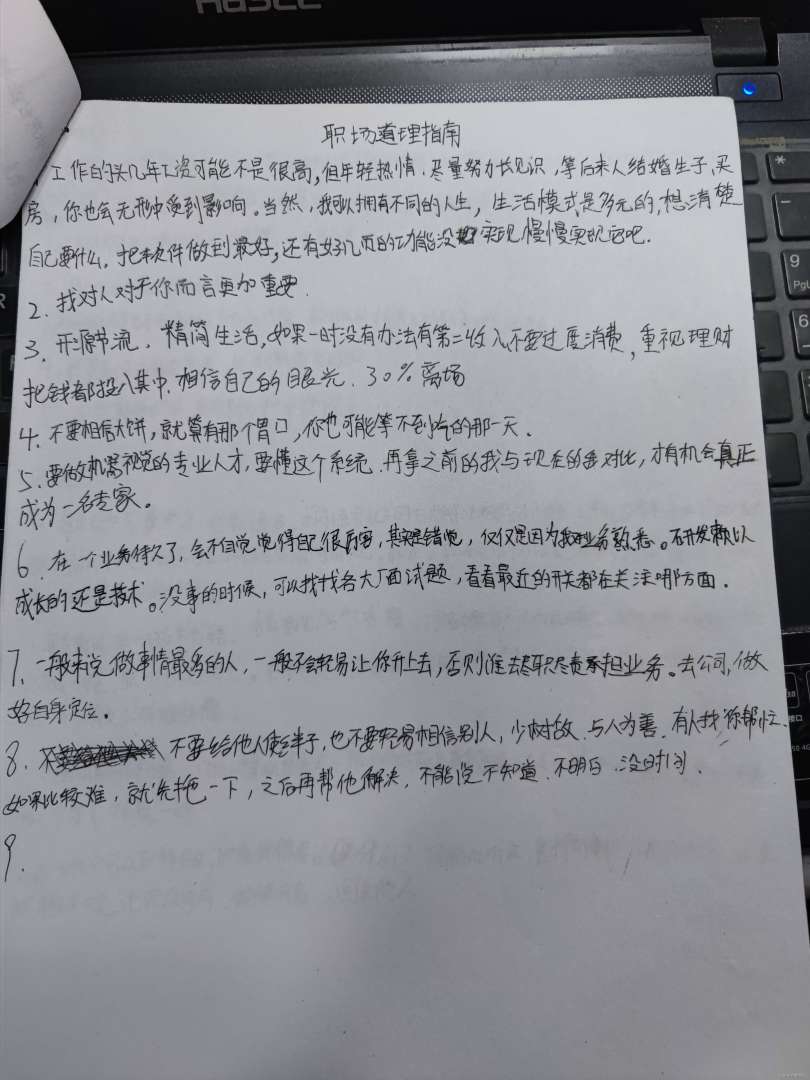 HASEE
职场道理指南
1. 工作的头几年工资可能不是很高,但年轻热情.尽量努力长见识,等后来人结婚生子、买
房,你也会无形中受到影响。当然,我可以拥有不同的人生,生活模式是多元的,想清楚
自己要什么.把本软件做到最好,还有好几页的功能没实现慢慢实现它吧.
2. 找对人对于你而言更加重要.
3. 开源节流.精简生活,如果一时没有办法有第二收入不要过度消费,重视理财
把钱都投入其中.相信自己的眼光.30%离场
4. 不要相信大饼,就算有那个胃口,你也可能等不到吃的那一天.
5. 要做机器视觉的专业人才,要懂这个系统.再拿之前的我与现在的我对比,才有机会真正
成为一名专家。
6. 在一个业务待久了,会不自觉觉得自己很厉害,其实是错觉,仅仅是因为我对业务熟悉。研发赖以
成长的还是技术。没事的时候,可以找找各大厂面试题,看看最近的开关都在关注哪方面.
7. 一般来说做事情最多的人,一般不会轻易让你升上去,否则谁去尽职尽责承担业务。去公司,做
好自身定位。
8. 不要给他人使绊子,也不要轻易相信别人,少树敌.与人为善.有人找你帮忙.
如果比较难,就先拖一下,之后再帮他解决.不能说不知道.不明白.没时间.
9.